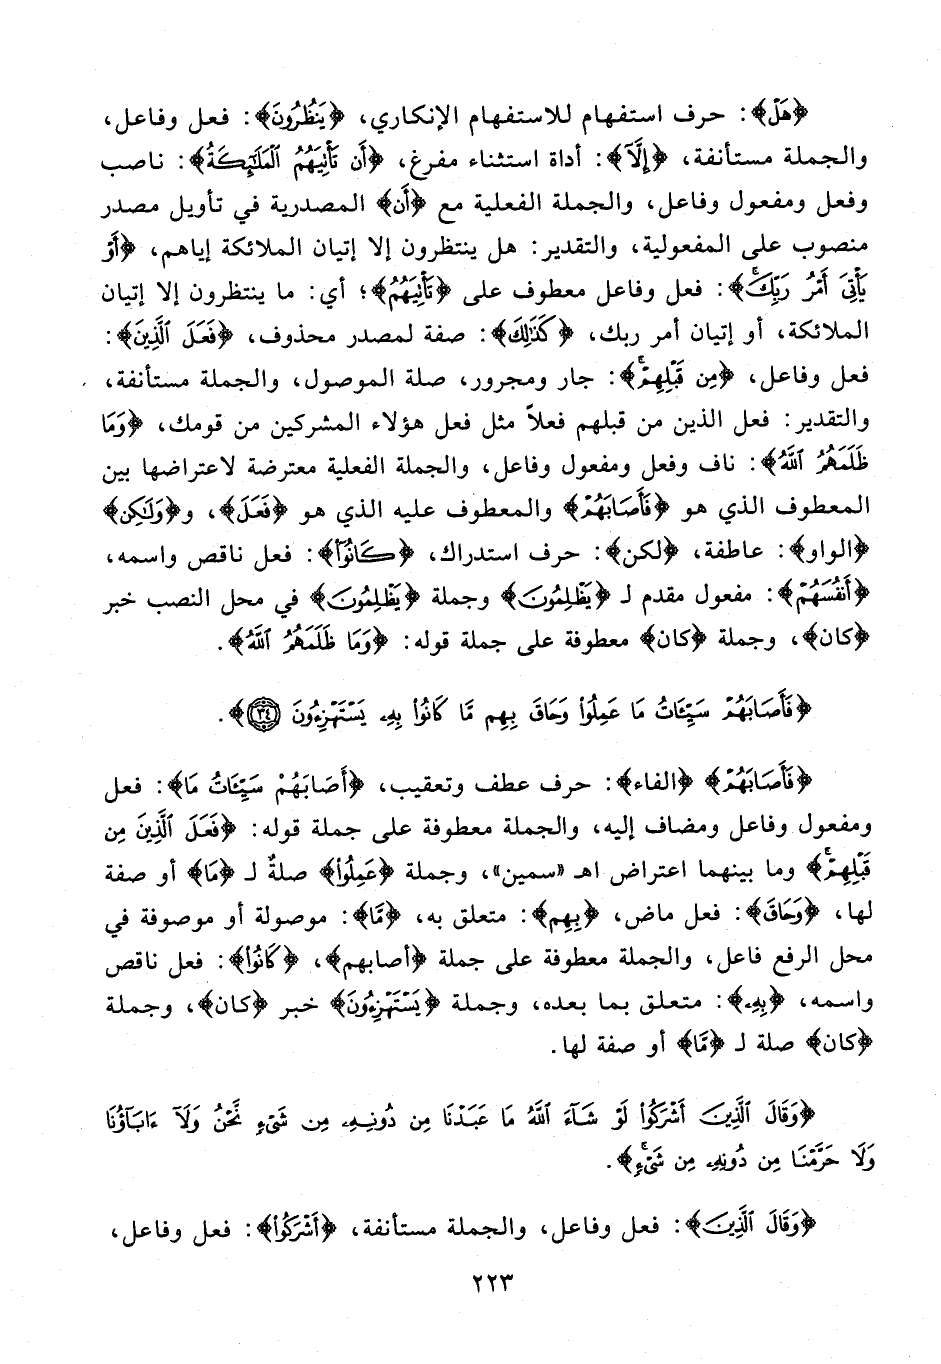 ﴿هَلْ﴾: حرف استفهام للاستفهام الإنكاري، ﴿يَنْظُرُونَ﴾: فعل وفاعل،
والجملة مستأنفة، ﴿إِلَّآ﴾: أداة استثناء مفرغ، ﴿أَن تَأْتِيَهُمُ ٱلْمَلَٰٓئِكَةُ﴾: ناصب
وفعل ومفعول وفاعل، والجملة الفعلية مع ﴿أَن﴾ المصدرية في تأويل مصدر
منصوب على المفعولية، والتقدير: هل ينتظرون إلا إتيان الملائكة إياهم، ﴿أَوْ
يَأْتِىَ أَمْرُ رَبِّكَ ۚ﴾: فعل وفاعل معطوف على ﴿تَأْتِيَهُمُ﴾؛ أي: ما ينتظرون إلا إتيان
الملائكة، أو إتيان أمر ربك، ﴿كَذَٰلِكَ﴾: صفة لمصدر محذوف، ﴿فَعَلَ ٱلَّذِينَ﴾:
فعل وفاعل، ﴿مِن قَبْلِهِمْ ۚ﴾: جار ومجرور، صلة الموصول، والجملة مستأنفة،
والتقدير: فعل الذين من قبلهم فعلاً مثل فعل هؤلاء المشركين من قومك، ﴿وَمَا
ظَلَمَهُمُ ٱللَّهُ﴾: ناف وفعل ومفعول وفاعل، والجملة الفعلية معترضة لاعتراضها بين
المعطوف الذي هو ﴿فَأَصَابَهُمْ﴾ والمعطوف عليه الذي هو ﴿فَعَلَ﴾، و﴿وَلَٰكِن﴾
﴿الواو﴾: عاطفة، ﴿لكن﴾: حرف استدراك، ﴿كَانُوٓا۟﴾: فعل ناقص واسمه،
﴿أَنفُسَهُمْ﴾: مفعول مقدم لـ ﴿يَظْلِمُونَ﴾ وجملة ﴿يَظْلِمُونَ﴾ في محل النصب خبر
﴿كان﴾، وجملة ﴿كان﴾ معطوفة على جملة قوله: ﴿وَمَا ظَلَمَهُمُ ٱللَّهُ﴾.
﴿فَأَصَابَهُمْ سَيِّـَٔاتُ مَا عَمِلُوا۟ وَحَاقَ بِهِم مَّا كَانُوا۟ بِهِۦ يَسْتَهْزِءُونَ ٣٤﴾.
﴿فَأَصَابَهُمْ﴾ ﴿الفاء﴾: حرف عطف وتعقيب، ﴿أَصَابَهُمْ سَيِّـَٔاتُ مَا﴾: فعل
ومفعول وفاعل ومضاف إليه، والجملة معطوفة على جملة قوله: ﴿فَعَلَ ٱلَّذِينَ مِن
قَبْلِهِمْ ۚ﴾ وما بينهما اعتراض اهـ «سمين»، وجملة ﴿عَمِلُوا۟﴾ صلةٌ لـ ﴿مَا﴾ أو صفة
لها، ﴿وَحَاقَ﴾: فعل ماض، ﴿بِهِم﴾: متعلق به، ﴿مَّا﴾: موصولة أو موصوفة في
محل الرفع فاعل، والجملة معطوفة على جملة ﴿أصابهم﴾، ﴿كَانُوا۟﴾: فعل ناقص
واسمه، ﴿بِهِۦ﴾: متعلق بما بعده، وجملة ﴿يَسْتَهْزِءُونَ﴾ خبر ﴿كان﴾، وجملة
﴿كان﴾ صلة لـ ﴿مَّا﴾ أو صفة لها.
﴿وَقَالَ ٱلَّذِينَ أَشْرَكُوا۟ لَوْ شَآءَ ٱللَّهُ مَا عَبَدْنَا مِن دُونِهِۦ مِن شَىْءٍ نَّحْنُ وَلَآ ءَابَآؤُنَا
وَلَا حَرَّمْنَا مِن دُونِهِۦ مِن شَىْءٍ ۚ﴾.
﴿وَقَالَ ٱلَّذِينَ﴾: فعل وفاعل، والجملة مستأنفة، ﴿أَشْرَكُوا۟﴾: فعل وفاعل،
٢٢٣